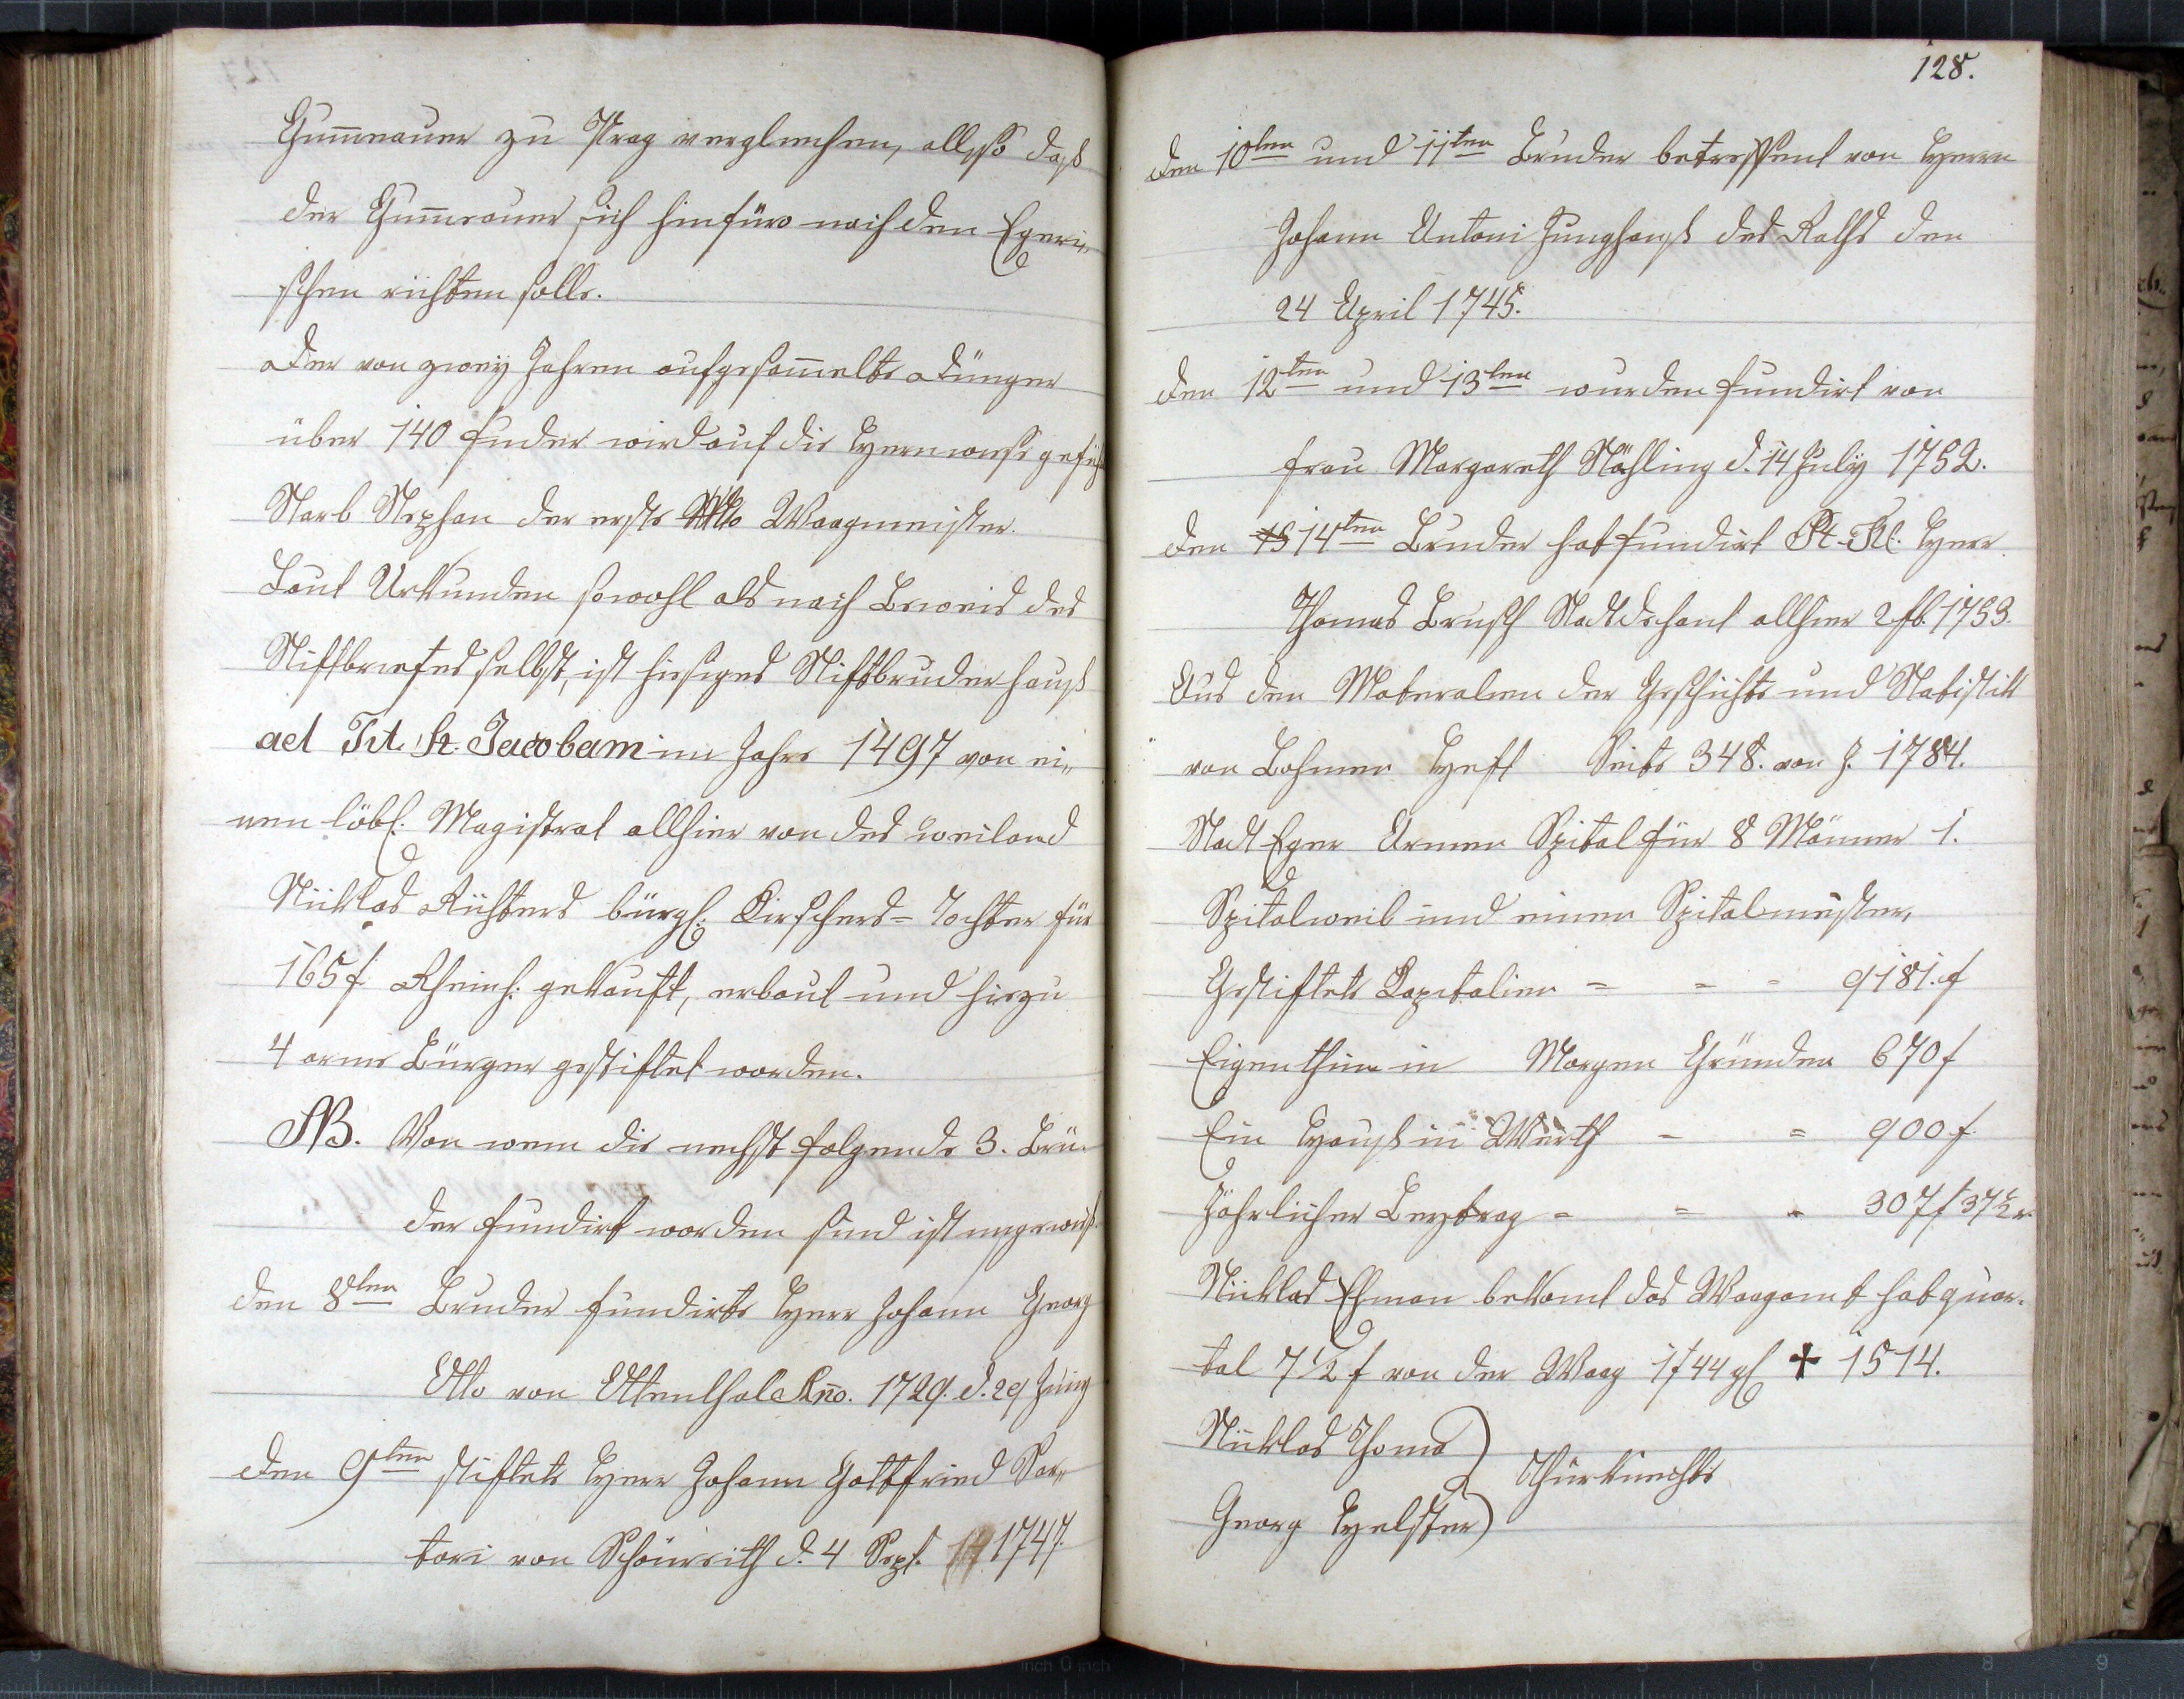 Gum̅erauer zu Prag verglichen, allso daß
der Gum̅erauer sich hinfüro nach den Egeri„
schen richten solle.
Der von zwey Jahren aufgesam̅elte Dünger
über 140 Fuder wird auf die Herrnwiese gefüh
Starb Stephan der erste Waagmeister.
Laut Urkunden sowohl als nach Beweis des
Stiftbriefes selbst, ist hiesiges Stiftbruderhauß
ad Tit. St. Jacobam im Jahre 1497 von ei„
nen löbl. Magistrat allhier von des weiland
Nicklas Richters bürgl. Kirschers= Tochter für
165 f Rheinh: gekauft, erbaut und hiezu
4 arme Bürger gestiftet worden.
NB. Von wem die nechst folgende 3. Brü„
der fundirt worden sind ist ungewiß.
den 8ten Bruder fundirte Herr Johann Georg
Otto von Ottenthal An̅o. 1729. d. 29 Juny
den 9ten stiftete Herr Johann Gottfried Sar„
tori von Schönreith d. 4 Sept. 1747.
128.
den 10ten und 11ten Bruder betreffent von Herrn
Johann Antoni Junghanß des Raths den
24 April 1745.
den 12ten und 13ten wurden fundirt von
Frau Margareth Nähling d. 14 July 1752.
den 15 14ten Bruder hat fundirt Herr
Thomas Brusch Stadtdechant allhier 2 fb. 1753.
Aus den Materalien der Geschichte und Statistik
von Bohmen Heft Seite 348. von J. 1784.
Stadt Eger Armen Spital für 8 Männer 1.
Spitalweib und einen Spitalmeister,
Gestiftete Capitalien = = = 9181. f
Eigenthum in Morgen Gründen 670 f
Ein Hauß in Werth = = 900 f.
Jährlicher Beytrag = = = 307 f 37½ x.
Nicklas Ehman bekomt das Waagamt hat quar„
tal 7 1/2 f von der Waag 1 f 44 gl ✝ 1514.
Nicklas Thoma )
Thürknechte
Georg Helster )